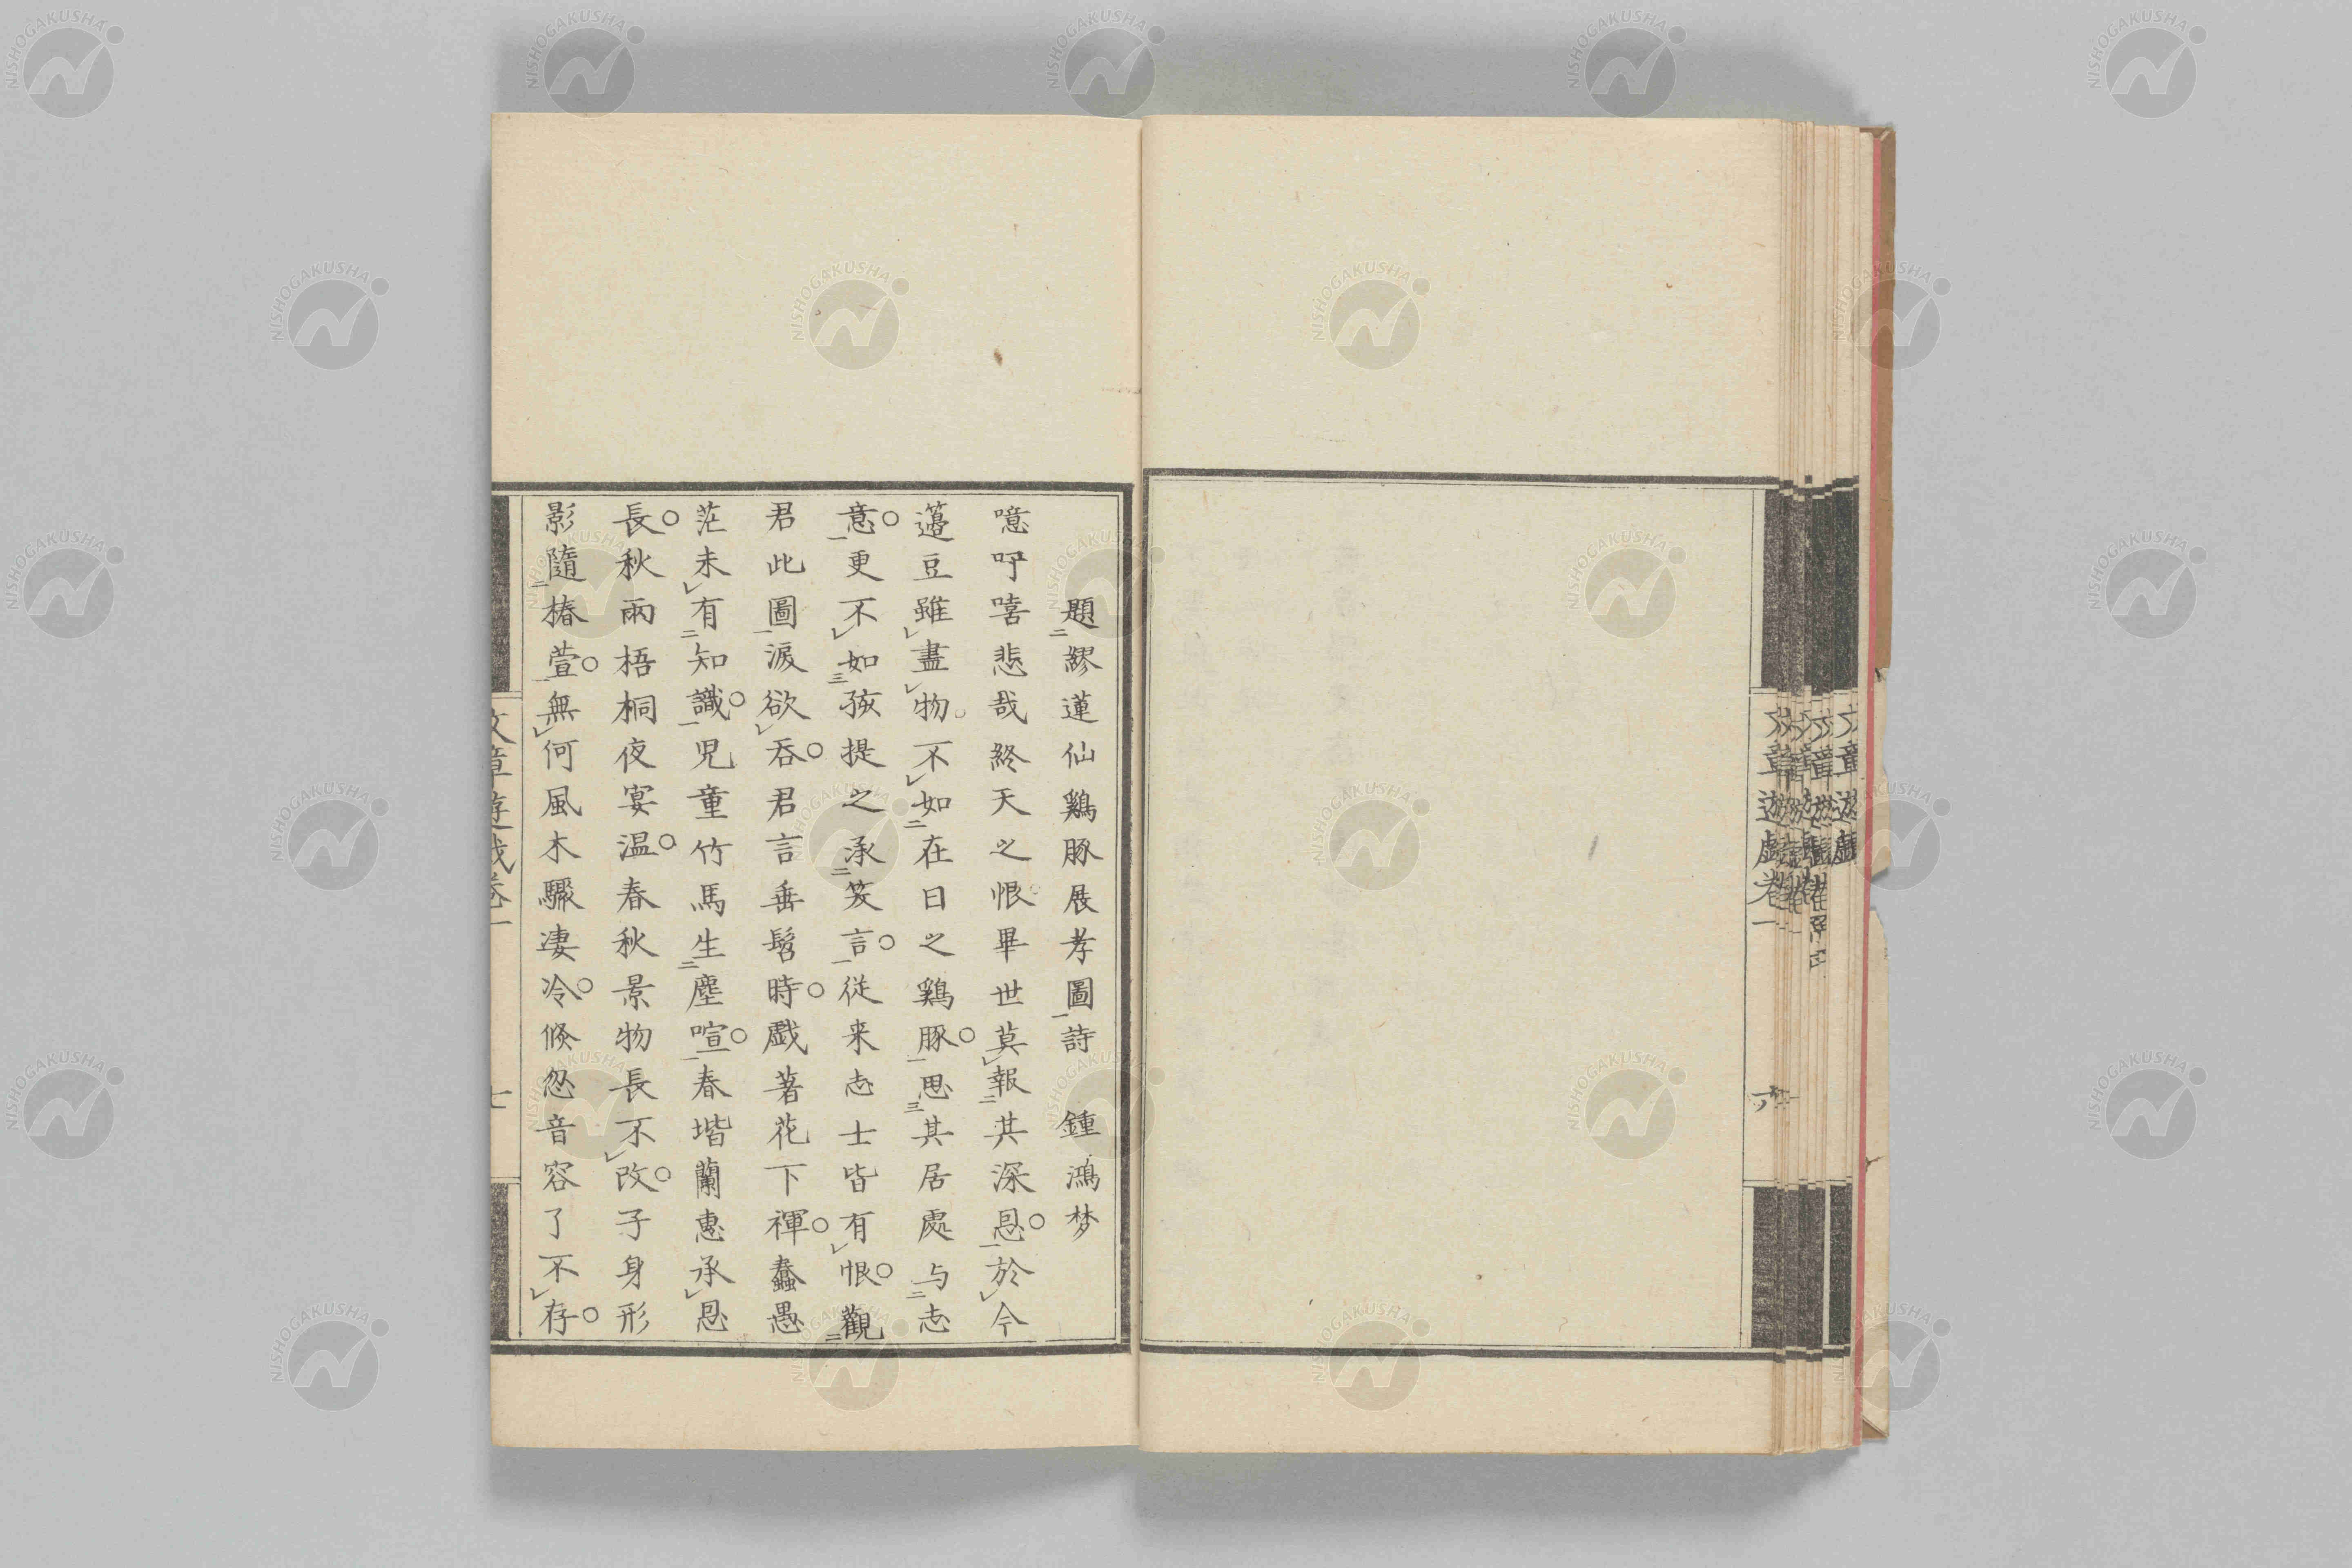 題繆蓮仙鷄豚展孝圖詩　鍾鴻梦
噫吁嘻悲哉終天之恨。畢世莫報其深恩。於今
薘豆雖盡物。不如在日之鷄豚。思其居處与志
意。更不如孩提之承笑言。從来志士皆有恨。觀
君此圖淚欲吞。君言垂髫時。戯著花下褌。蠢愚
茫未有知識。兒童竹馬生塵喧。春堦蘭蕙承恩
長。秋雨梧桐夜宴温。春秋景物長不改。子身形
影隨椿萱。無何風木驟凄冷。倏忽音容了不存。
文章遊戯卷一
七
文章遊戯卷一
六
NISHOGAKUSHA